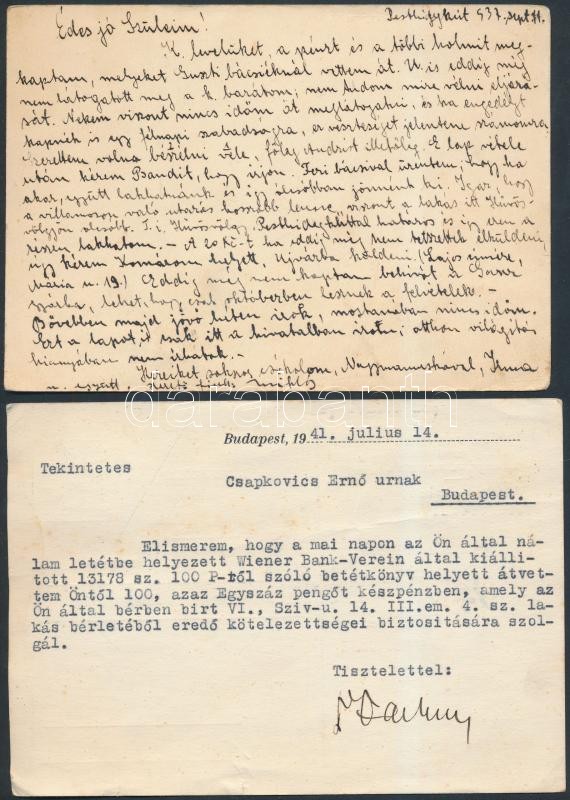 Pesthidegkút 937. sept. 11.
Édes jó Szüleim!
K. levelüket, a pénzt és a többi holmit meg-
kaptam, melyeket Guszti bácsiéknál vettem át. U. is eddig még
nem látogatott meg a k. barátom; nem tudom mire vélni eljárá-
sát. Nekem viszont nincs időm őt meglátogatni, és ha engedélyt
kapnék is egy félnapi szabadságra, az veszteséget jelentene számomra.
Szerettem volna beszélni vele, főleg Andrist illetőleg. E lap vétele
után kérem Bandit, hogy írjon. Feri bácsival üzentem, hogy ha
akar, együtt lakhatnánk és így olcsóbban jönnénk ki. Igaz, hogy
a villamoson való utazás hosszabb lenne, viszont a lakás itt Hűvös-
völgyön olcsóbb. T. i. Hűvösvölgy Pesthidegkúttal határos és így ezen a
részen lakhatom. – A 20 Kč-t ha eddig még nem tetszettek elküldeni,
úgy kérem Komárom helyett Ujvárba küldeni (Lajos címére,
Mária u. 19.) Eddig még nem kaptam behívót a Ganz
gyárba, lehet, hogy csak októberben lesznek a felvételek. –
Bővebben majd jövő héten írok, mostanában nincs időm.
Ezt a lapot is csak itt a hivatalban írom; otthon világítás
hiányában nem írhatok. –
Kezeiket sokszor csókolom, Nagymamáskával, Irma
n. együtt, Miklós
darabanth
Budapest, 1941. julius 14.
Tekintetes
Csapkovics Ernő urnak
Budapest.
Elismerem, hogy a mai napon az Ön által ná-
lam letétbe helyezett Wiener Bank-Verein által kiálli-
tott 13178 sz. 100 P-ről szóló betétkönyv helyett átvet-
tem Öntől 100, azaz Egyszáz pengőt készpénzben, amely az
Ön által bérben birt VI., Sziv-u. 14. III.em. 4. sz. la-
kás bérletéből eredő kötelezettségei biztositására szol-
gál.
Tisztelettel: